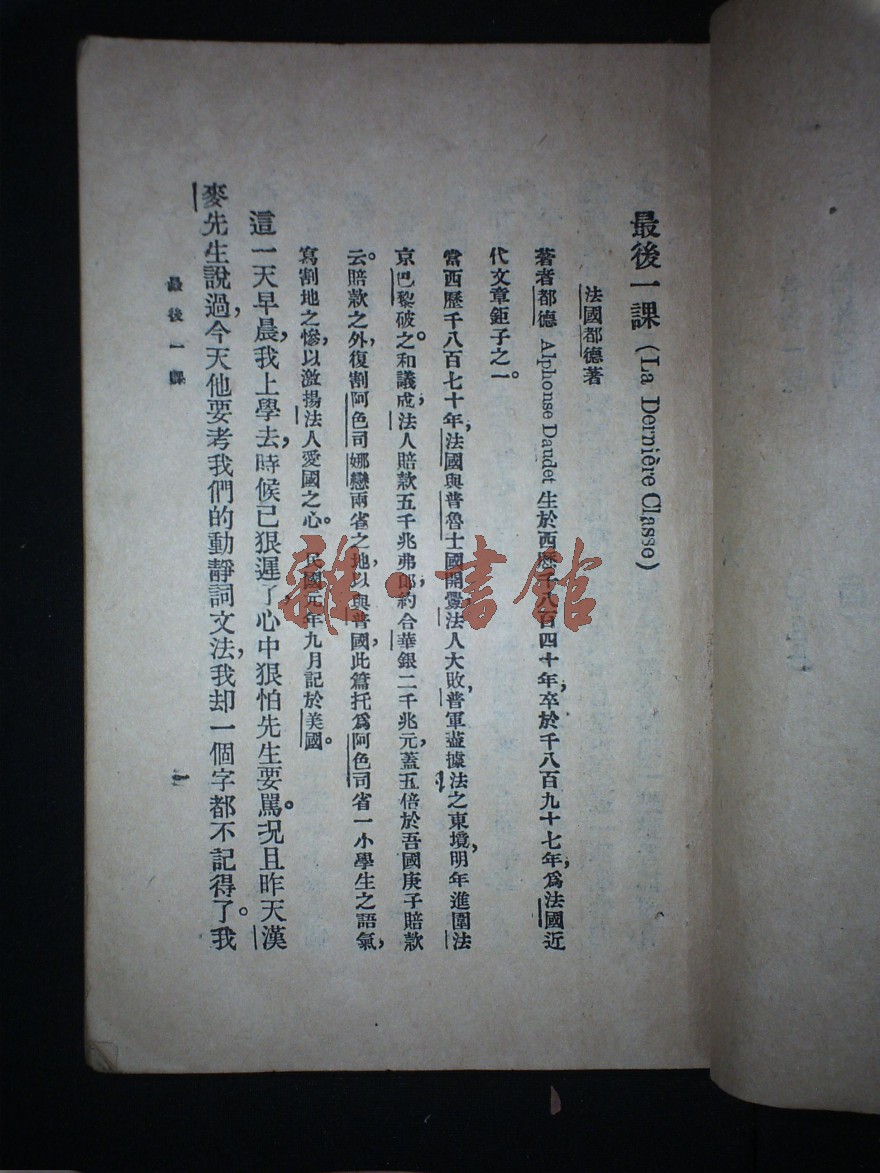 最後一課 (La Dernière Classe)
法國都德著
著者都德 Alphonse Daudet 生於西歷千八百四十年，卒於千八百九十七年，爲法國近
代文章鉅子之一。
當西歷千八百七十年，法國與普魯士國開釁，法人大敗，普軍盡據法之東境，明年進圍法
京巴黎破之。和議成，法人賠款五千兆弗郎，約合華銀二千兆元，蓋五倍於吾國庚子賠款
云。賠款之外，復割阿色司娜戀兩省之地，以與普國，此篇托爲阿色司省一小學生之語氣，
寫割地之慘，以激揚法人愛國之心。民國元年九月記於美國。
這一天早晨，我上學去，時候已狠遲了，心中狠怕先生要罵。況且昨天漢
麥先生說過，今天他要考我們的動靜詞文法，我却一個字都不記得了。我
最後一課
一
雜·書館